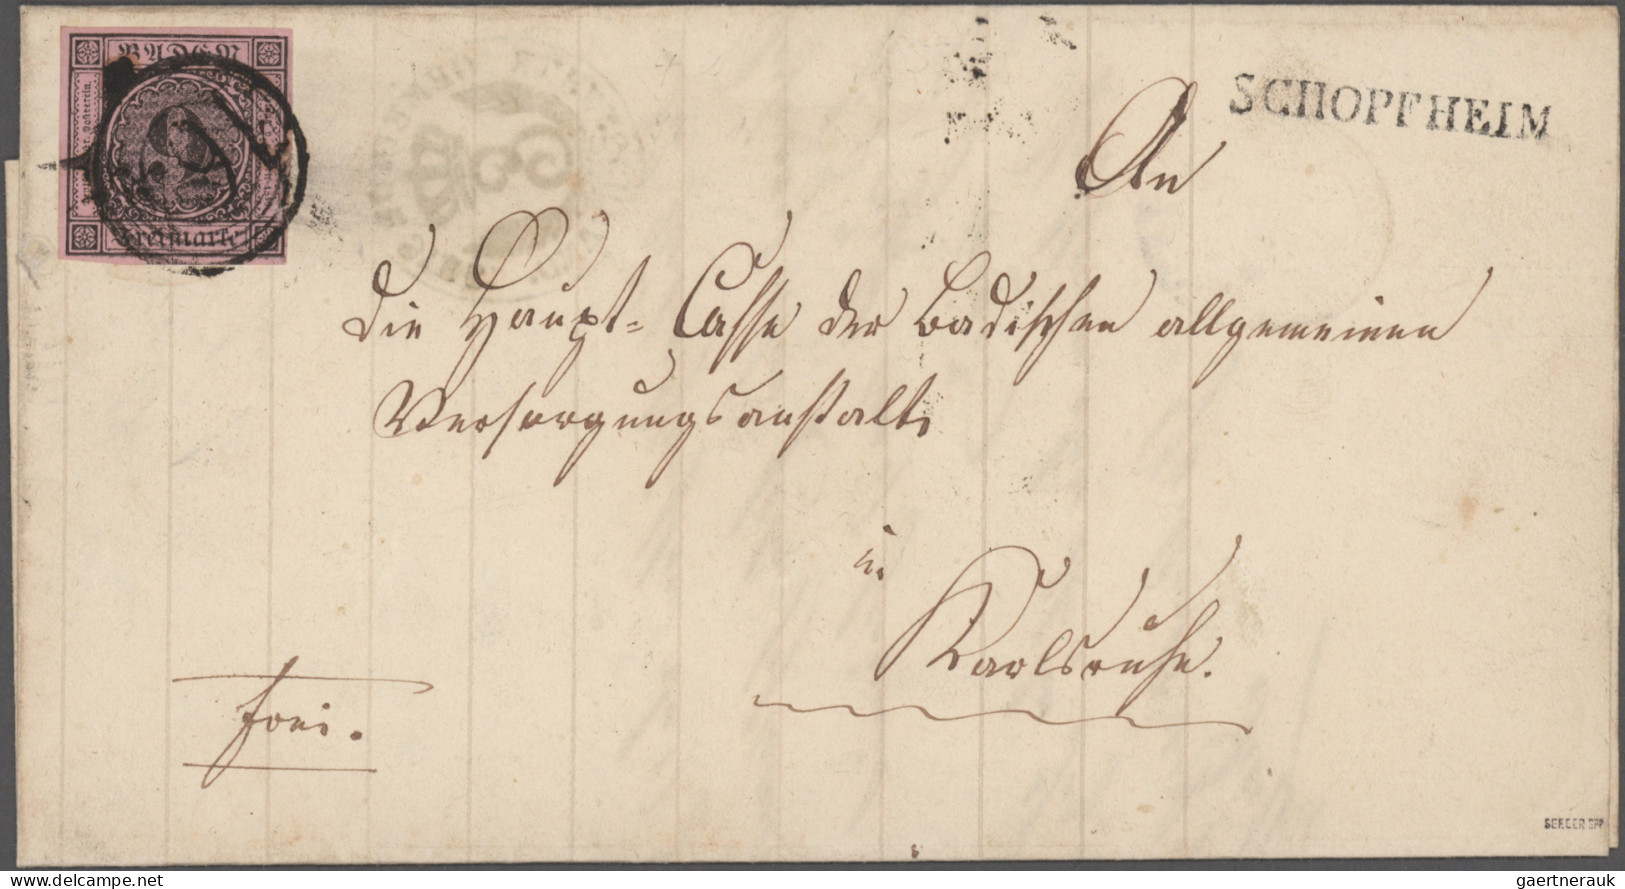 BADEN
9
Freimarke
SCHOPFHEIM
An
die Haupt-Casse der Badischen allgemeinen
Versorgungsanstalt
in
Karlsruhe.
frei.
SEEGER BPP
gaertnerauk